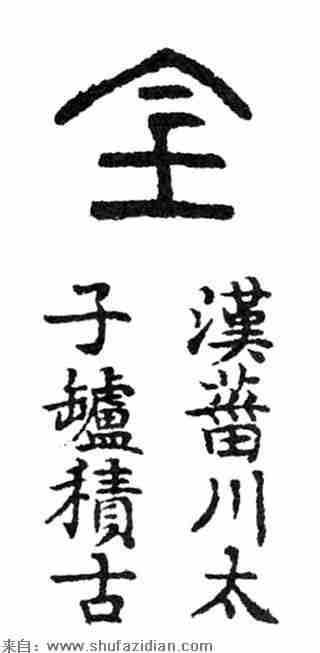 漢菑川太
子罏積古
来自：www.shufazidian.com